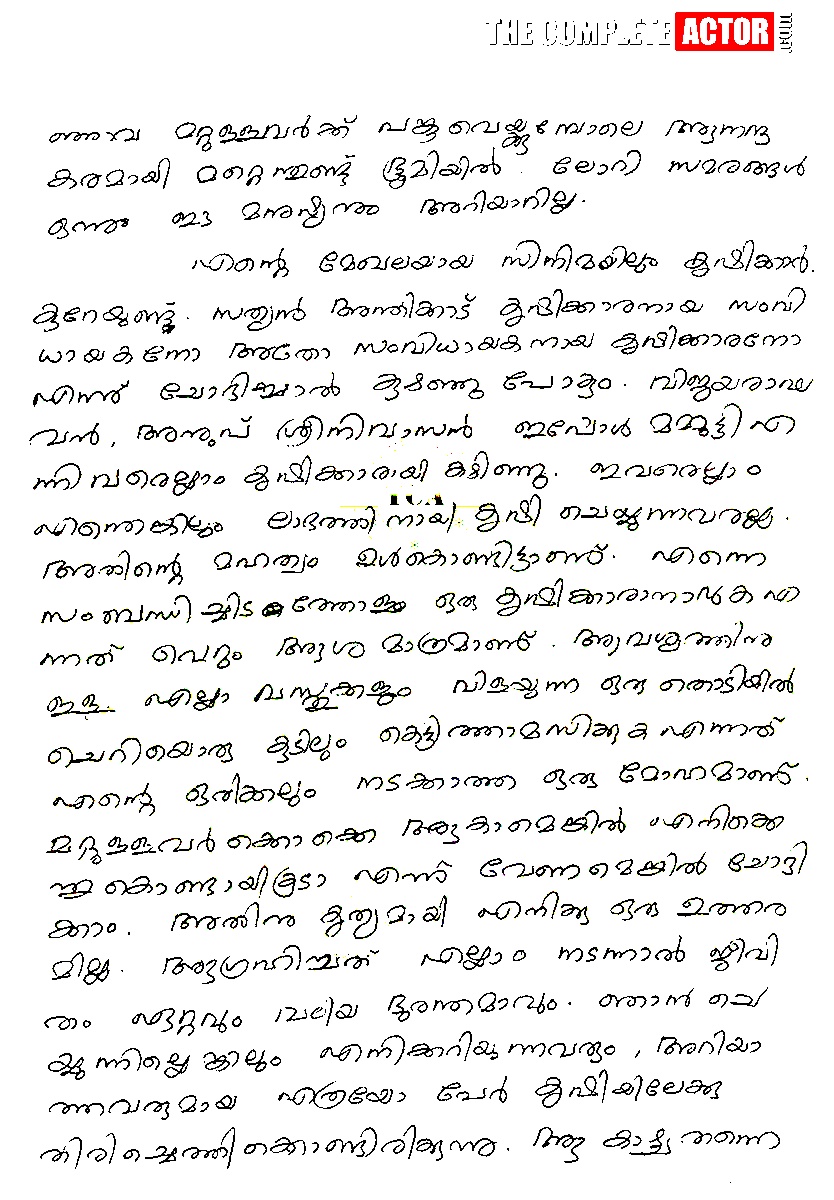 THE COMPLETE ACTOR
അവ മറ്റുള്ളവർക്ക് പങ്കുവെയ്ക്കുമ്പോലെ ആനന്ദ
കരമായി മറ്റെന്തുണ്ട് ഭൂമിയിൽ. ലോറി സമരങ്ങൾ
ഒന്നും ഈ മനുഷ്യനും അറിയാറില്ല.
എന്റെ മേഖലയായ സിനിമയിലും കൃഷിക്കാർ
കുറേയുണ്ട്. സത്യൻ അന്തിക്കാട് കൃഷിക്കാരനായ സംവി
ധായകനോ അതോ സംവിധായകനായ കൃഷിക്കാരനോ
എന്ന് ചോദിച്ചാൽ കുഴഞ്ഞു പോകും. വിജയരാഘ
വൻ, അനൂപ് ശ്രീനിവാസൻ ഇപ്പോൾ മമ്മൂട്ടി എ
ന്നിവരെല്ലാം കൃഷിക്കാരായി കഴിഞ്ഞു. ഇവരെല്ലാം
എന്തെങ്കിലും ലാഭത്തിനായി കൃഷി ചെയ്യുന്നവരല്ല.
അതിന്റെ മഹത്വം ഉൾകൊണ്ടിട്ടാണ്. എന്നെ
സംബന്ധിച്ചിടത്തോളം ഒരു കൃഷിക്കാരാനാൻക എ
ന്നത് വെറും ആശ മാത്രമാണ്. ആവശ്യത്തിനു
ഉള്ള എല്ലാ വസ്തുക്കളും വിളയുന്ന ഒരു തൊടിയിൽ
ചെറിയൊരു കുടിലും കെട്ടിത്താമസിക്കുക എന്നത്
എന്റെ ഒരിക്കലും നടക്കാത്ത ഒരു മോഹമാണ്.
മറ്റുള്ളവർക്കൊക്കെ ആകാമെങ്കിൽ എനിക്കെ
ന്തുകൊണ്ടായികൂടാ എന്ന് വേണമെങ്കിൽ ചോദി
ക്കാം. അതിനു കൃത്യമായി എനിക്കു ഒരു ഉത്തര
മില്ല. ആഗ്രഹിച്ചത് എല്ലാം നടന്നാൽ ജീവി
തം ഏറ്റവും വലിയ ദുരന്തമാവും. ഞാൻ ചെ
യ്യുന്നില്ലെങ്കിലും എനിക്കറിയുന്നവരും, അറിയാ
ത്തവരുമായ എത്രയോ പേർ കൃഷിയിലേക്കു
തിരിച്ചെത്തിക്കൊണ്ടിരിക്കുന്നു. ആ കാഴ്ച തന്നെ